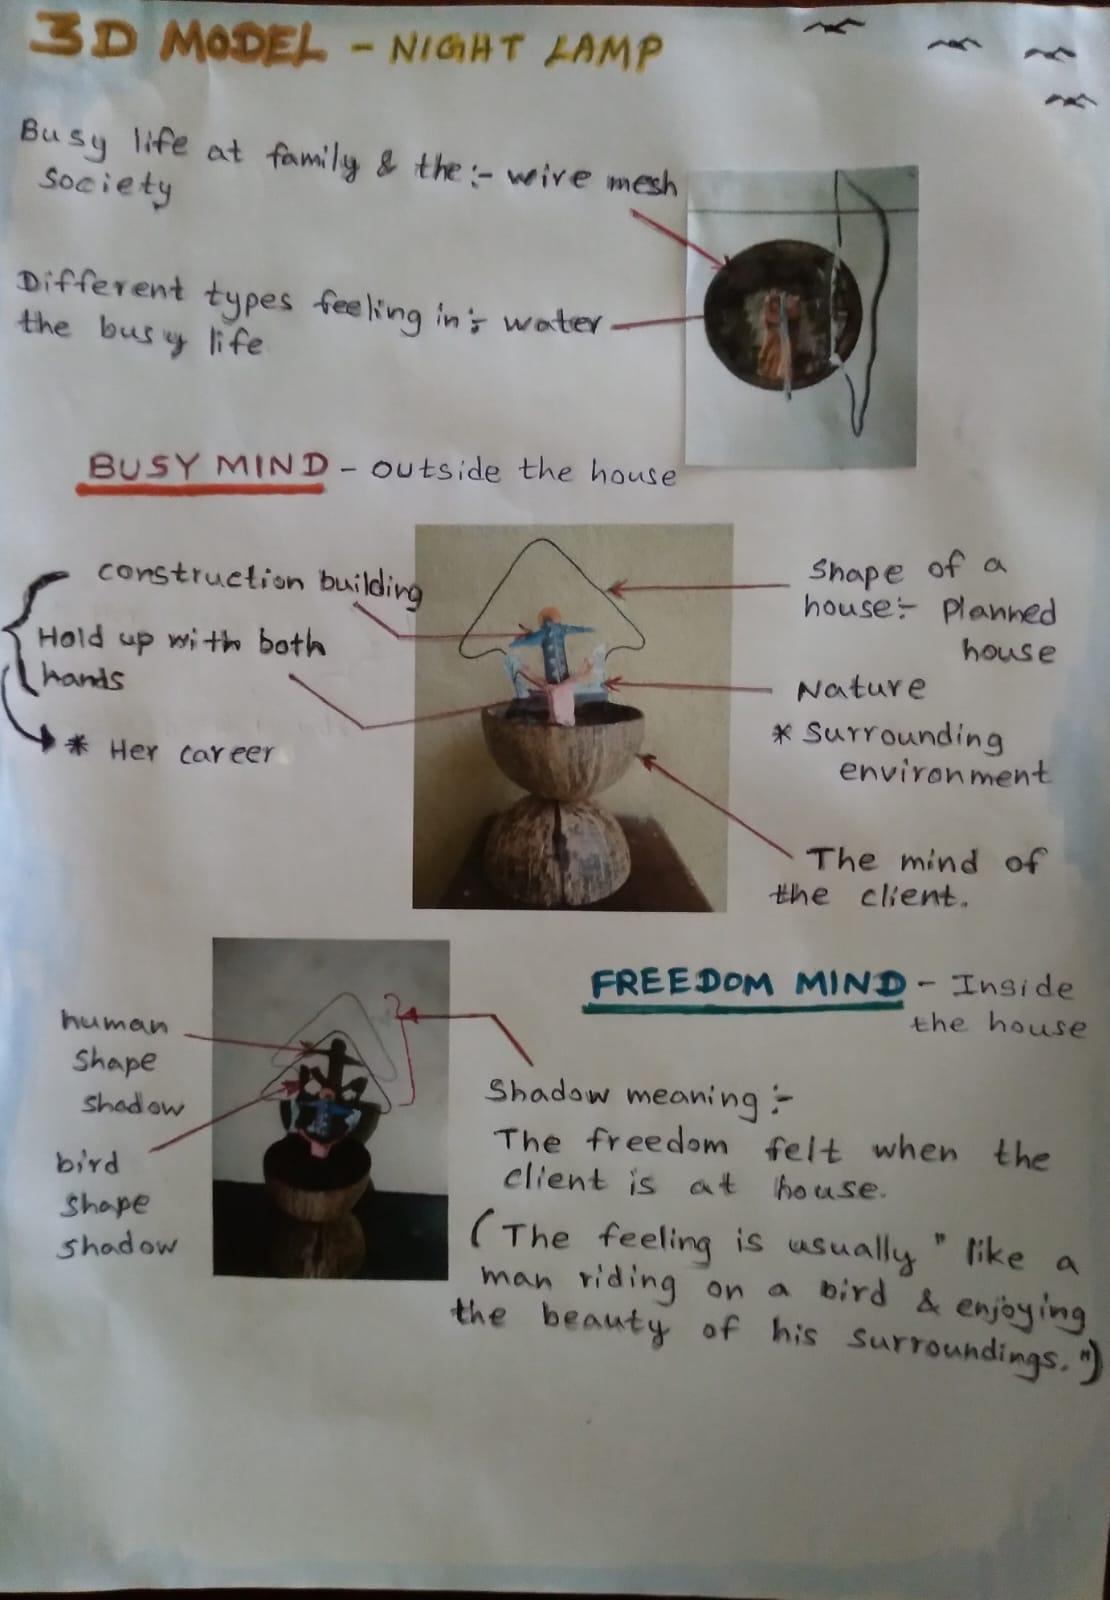 3D MODEL - NIGHT LAMP
Busy life at family & the :- wire mesh
society
Different types feeling in :- water
the busy life
BUSY MIND - outside the house
construction building
Hold up with both
hands
* Her career
Shape of a
house:- Planned
house
Nature
* Surrounding
environment
The mind of
the client.
FREEDOM MIND - Inside
the house
human
shape
shadow
bird
shape
shadow
Shadow meaning :-
The freedom felt when the
client is at house.
(The feeling is usually "like a
man riding on a bird & enjoying
the beauty of his surroundings.")